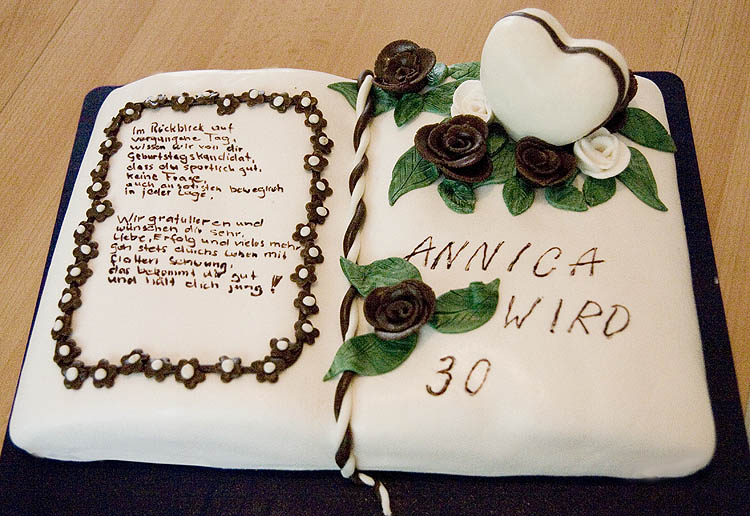 Im Rückblick auf
vergangene Tag,
wissen wir von dir
Geburtstagskandidat,
dass du sportlich gut,
keine Frage,
auch ansonsten beweglich
in jeder Lage.
Wir gratulieren und
wünschen dir sehr,
Liebe, Erfolg und vieles mehr
geh stets durchs Leben mit
flottem Schwung,
das bekommt dir gut
und hält dich jung!
ANNICA
WIRD
30